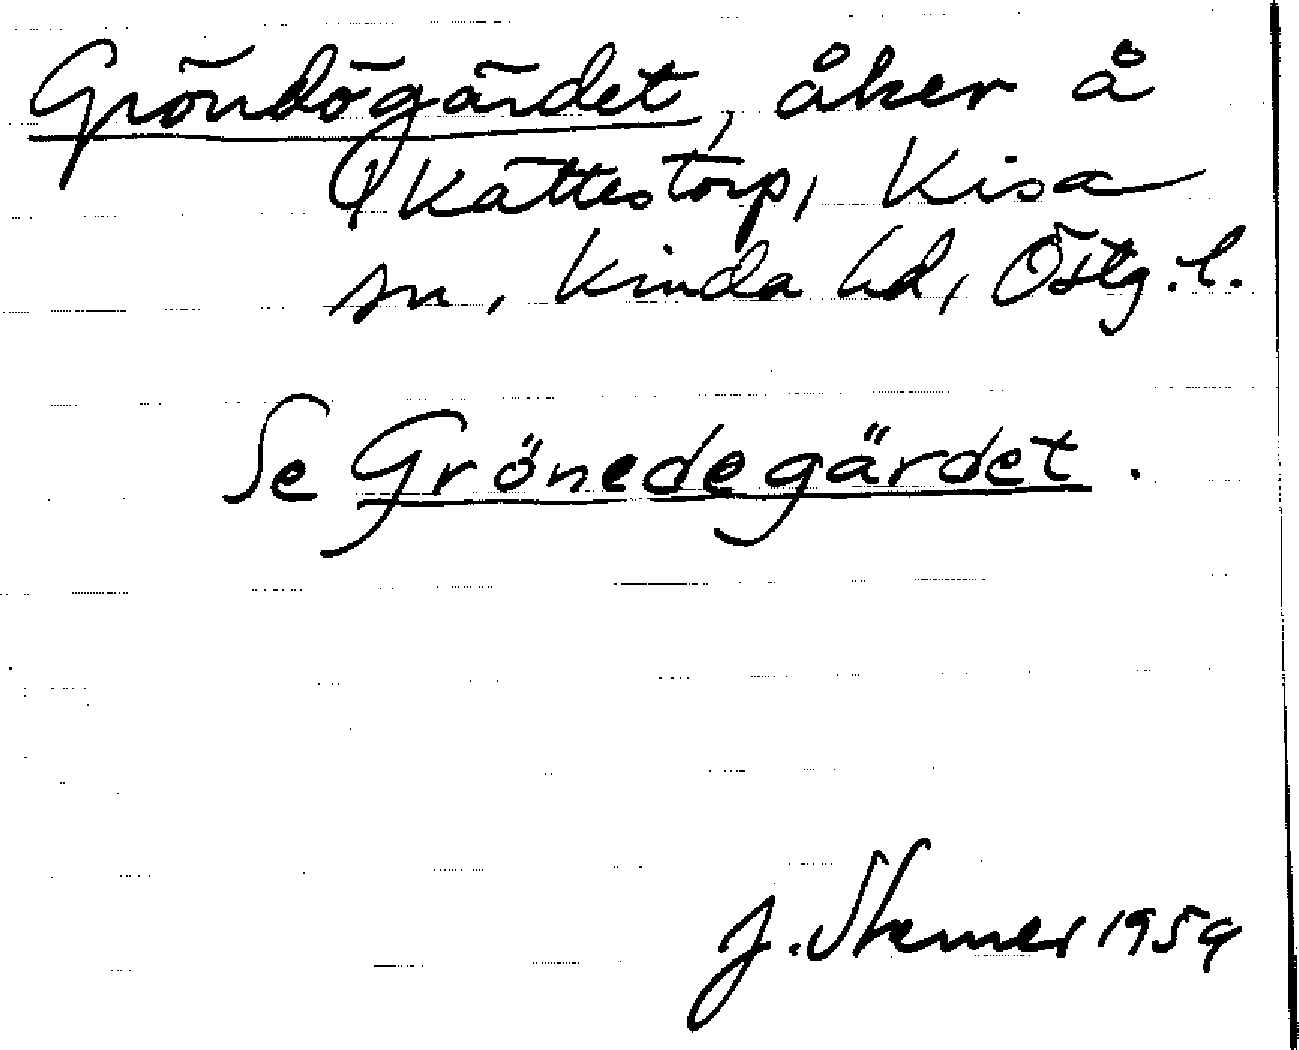 Gröndögärdet, åker å
Kättestorp, Kisa
sn, Kinda hd, Östg. l.
Se Grönedegärdet.
J. 1959